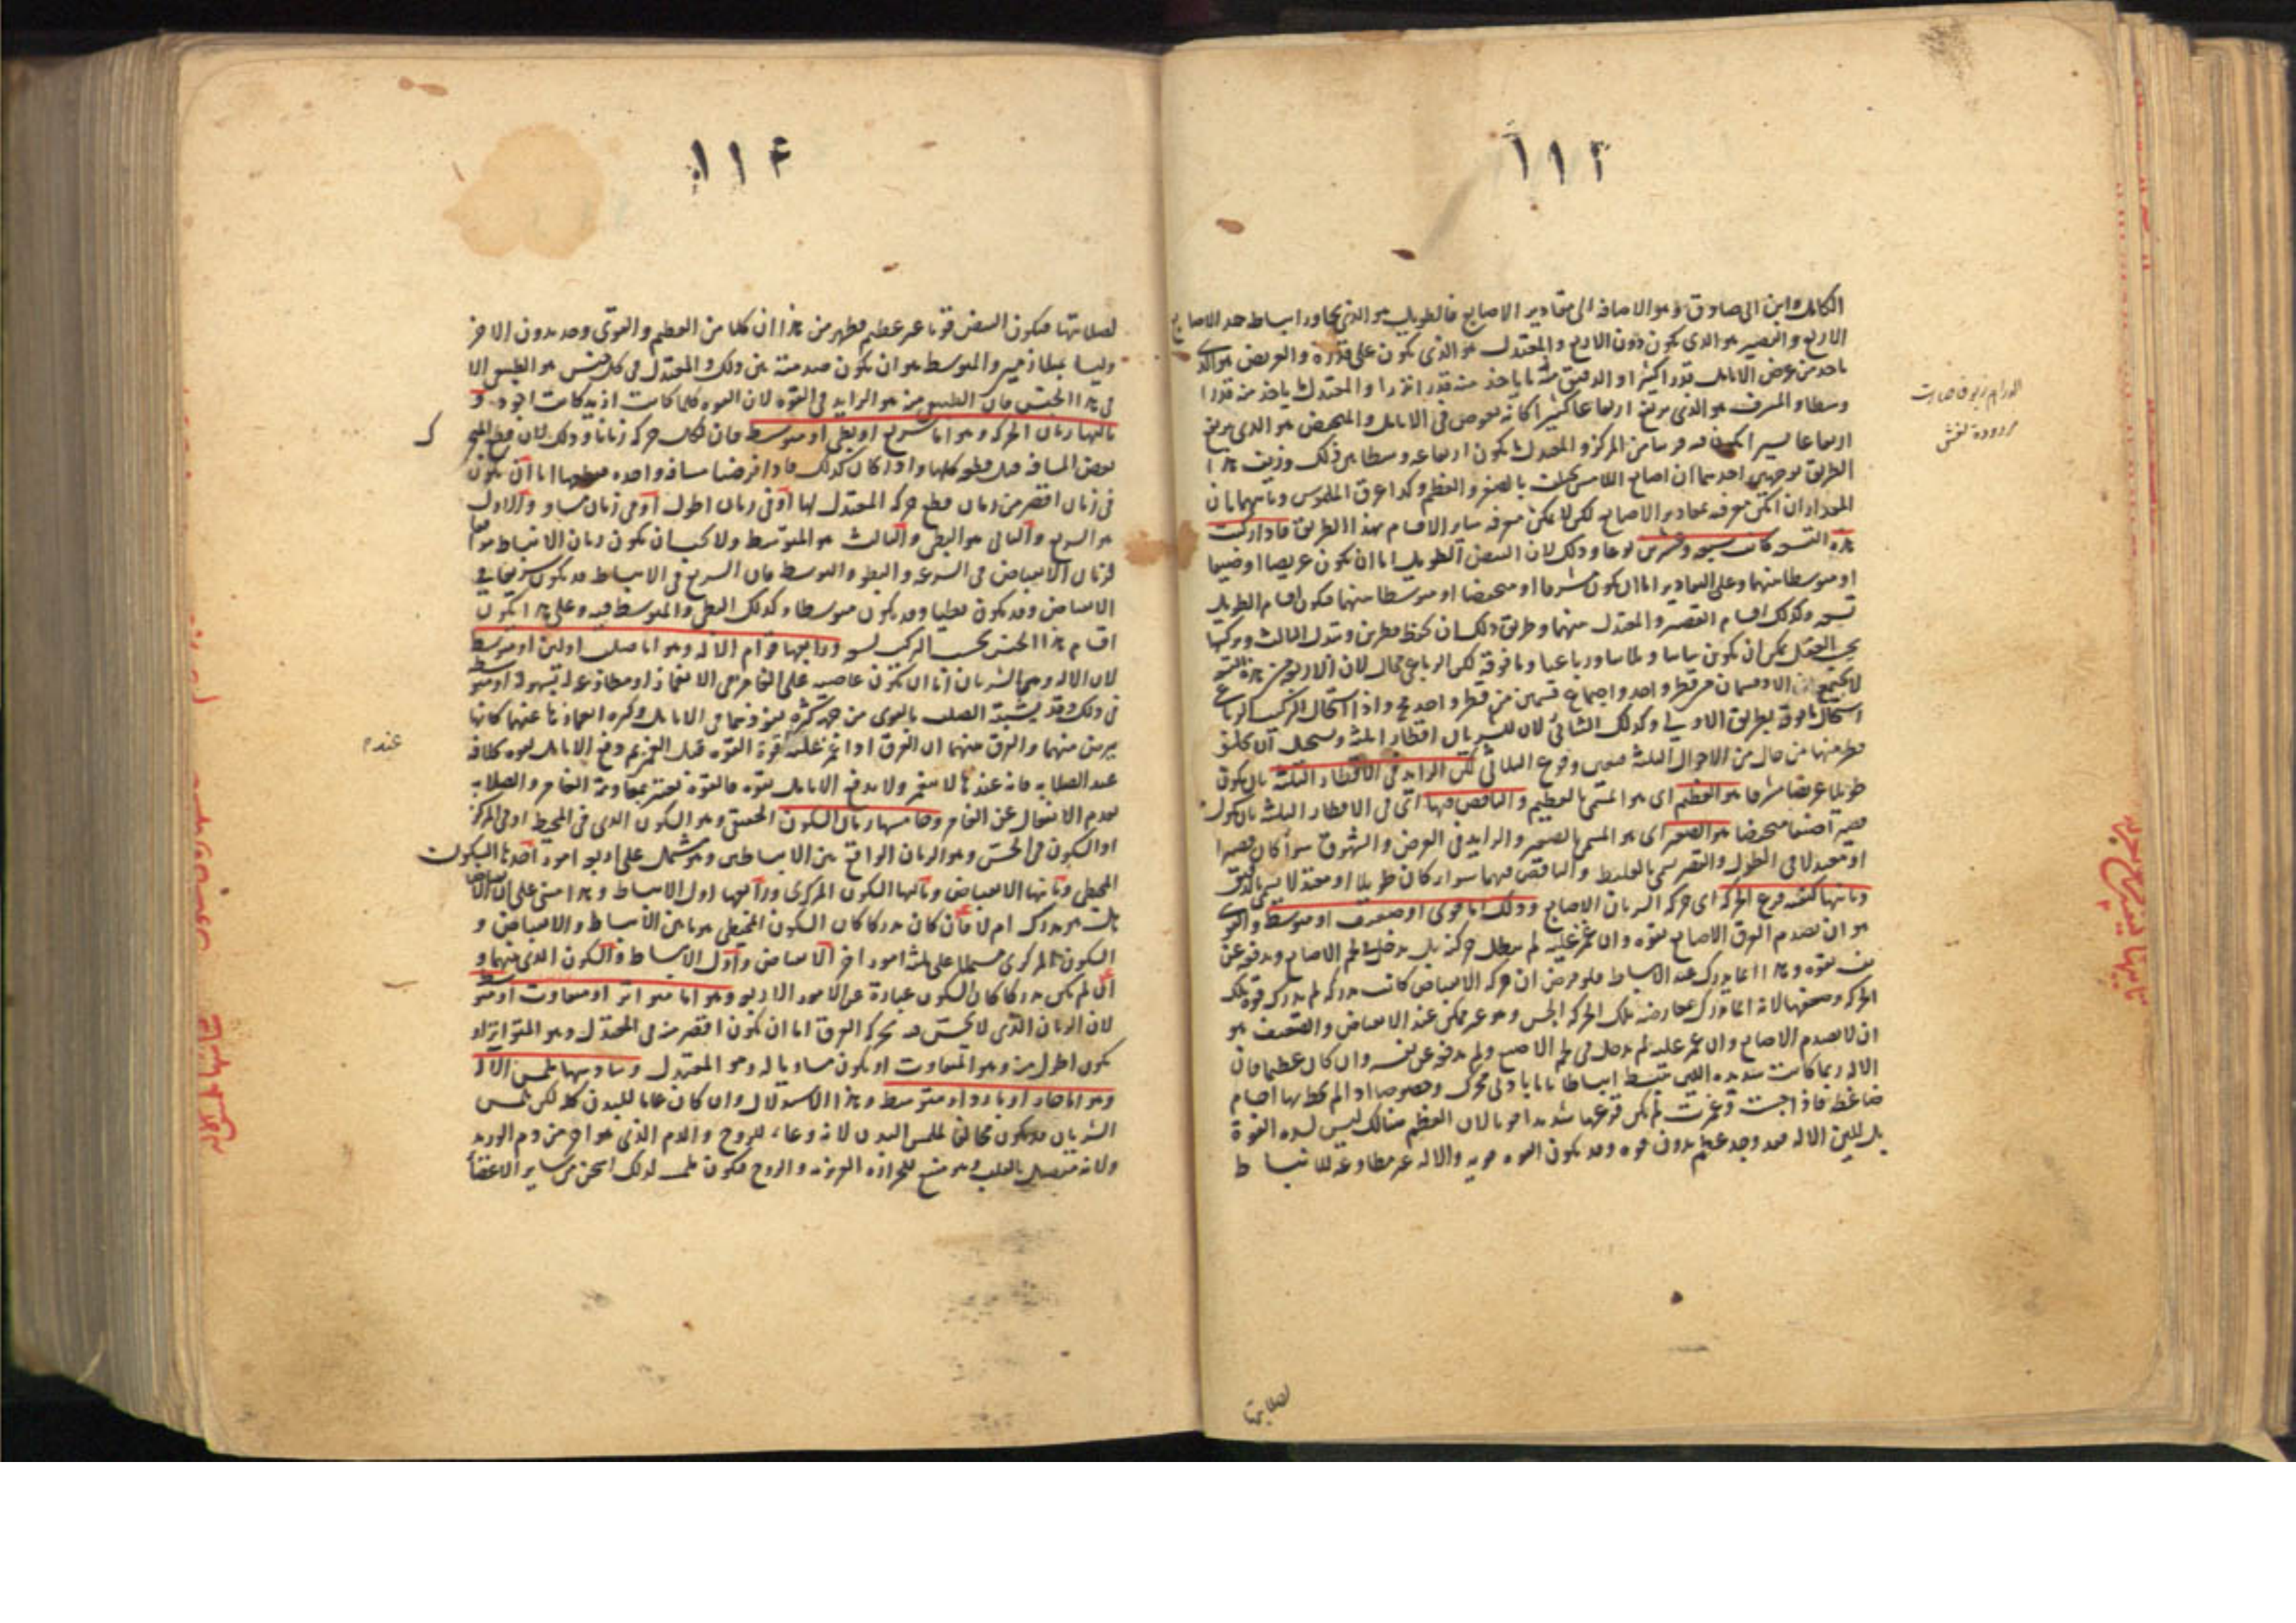 ١١٣
الكامل وابن ابى صادق وهو الاضافة الى مقادير الاصابع فالطويل هو الذى يجاوز انبساطه حد الاصابع
الاربع والقصير هو الذى يكون دون الاربع والمعتدل هو الذى يكون على قدره والعريض هو الذى
ياخذ من عرض الانامل قدرا كثيرا والدقيق منه ما ياخذ منه قدرا نزرا والمعتدل ياخذ منه قدرا
وسطا والمشرف هو الذى يرتفع ارتفاعا كثيرا كانه يغوص فى الانامل والمنخفض هو الذى يرتفع
ارتفاعا يسيرا من المركز والمعتدل يكون ارتفاعه وسطا بين ذلك وزيف هذا
الطريق بوجهين احدهما ان اصابع اللامس تختلف بالصغر والعظم وكذا عرق الملموس وثانيهما ان
ان امكن معرفة بمقادير الاصابع لكن لا يمكن معرفة ساير الاقسام بهذا الطريق فاذا ركبت
هذه التسعة كانت سبعة وعشرين نوعا وذلك لان النبض الطويل اما ان يكون عريضا او ضيقا
او متوسطا بينهما وعلى التقادير اما ان يكون مشرفا او منخفضا او متوسطا بينهما فيكون اقسام الطويل
تسعة وكذلك اقسام القصير والمعتدل منهما وطريق ذلك ان تحفظ قطرين وتبدل الثالث وتركيبها
بحسب العقل يمكن ان يكون ثنائيا وثلاثيا ورباعيا وما فوقه لكن الرباعى محال لان الاربع من هذه التسعة
لا تجتمع الا وقسمان من قطر واحد واجتماع قسمين من قطر واحد مح واذا استحال التركيب الرباعى
استحال ما فوقه بطريق الاولى وكذلك الثنائى لان للشريان اقطارا ثلثة ويستحيل ان يخلو
قطر منها من حال من الاحوال الثلثة فتعين وقوع الثلاثى لكن الزايد فى الاقطار الثلثة بان يكون
طويلا عريضا مشرفا هو العظيم اى هو المسمى بالعظيم والناقص فيها اى فى الاقطار الثلثة بان يكون
قصيرا ضيقا منخفضا هو الصغير اى هو المسمى بالصغير والزايد فى العرض والشهوق سواء كان قصيرا
او معتدلا فى الطول والقصر يسمى بالغليظ والناقص فيهما سواء كان طويلا او معتدلا يسمى بالدقيق
وثانيها كيفية قرع الحركة اى حركة الشريان الاصابع وذلك اما قوى او ضعيف او متوسط والقوى
هو ان يصدم العرق الاصابع بقوة وان غمز عليه لم يبطل حركته بل يدخل فى لحم الاصابع ويدفعه عن
نفسه بقوة وهذا انما يدرك عند الانبساط فلو فرض ان حركة الانقباض كانت مدركة لم يدرك قوة تلك
الحركة وضعفها لانه انما يدرك بمعارضة تلك الحركة الجس وهو غير ممكن عند الانقباض والضعيف هو
ان لا يصدم الاصابع وان غمز عليه لم يدخل فى لحم الاصبع ولم يدفعه عن نفسه وان كان عظيما فان
الالة ربما كانت شديدة اللين فتنبسط انبساطا تاما بادنى محرك وخصوصا اذا لم يحط بها اجسام
ضاغطة فاذا جست وغمزت لم يكن قرعها شديدا قويا لان العظم هنالك ليس لشدة القوة
بل للين الالة فقد وجد عظيم بدون قوة وقد يكون القوة قوية والالة غير مطاوعة للانبساط
لصلابتها
١١٤
لصلابتها فيكون النبض قويا غير عظيم فظهر من هذا ان كلا من العظيم والقوى وجد بدون الاخر
وليسا بمتلازمين والمتوسط هو ان يكون صدمته بين ذلك والمعتدل فى كل جنس هو الطبيعى الا
فى هذا الجنس فان الطبيعى منه هو الزايد فى القوة لان القوة كلما كانت ازيد كانت اجود و
ثالثها زمان الحركة وهو اما سريع او بطى او متوسط فان لكل حركة زمانا وذلك لان قطع المتحرك
بعض المسافة قبل قطع كلها واذا كان كذلك فاذا فرضنا مسافة واحدة فقطعها اما ان يكون
فى زمان اقصر من زمان قطع حركة المعتدل لها او فى زمان اطول او فى زمان مساو والاول
هو السريع والثانى هو البطى والثالث هو المتوسط ولا يجب ان يكون زمان الانبساط موافقا
لزمان الانقباض فى السرعة والبطو والتوسط فان السريع فى الانبساط قد يكون سريعا فى
الانقباض وقد يكون بطيا وقد يكون متوسطا وكذلك البطى والمتوسط فيه وعلى هذا يكون
اقسام هذا الجنس بحسب التركيب تسعة ورابعها قوام الالة وهو اما صلب او لين او متوسط
لان الالة وهى الشريان اما ان يكون عاصية على الغامز فى الانغماز او مطاوعة له بسهولة او متوسط
فى ذلك وقد يشتبه الصلب بالقوى من جهة نفوذهما فى الانامل
والفرق بينهما ان العرق اذا غمز عليه قوة القوة قبل الغمز ثم دفع الانامل بقوة بخلافه
عند الصلابة فانه عندها لا ينغمز ولا يدفع الانامل بقوة فالقوة تعتبر بمقاومة الغامز والصلابة
بعدم الانفعال عن الغامز وخامسها زمان السكون الحقيقى وهو السكون الذى فى المحيط او فى المركز
او السكون فى الحس وهو الزمان الواقع بين الانبساطين وهو يشتمل على اربعة امور احدها السكون
المحيطى وثانيها الانقباض وثالثها السكون المركزى ورابعها اول الانبساط وهذا مبنى على ان الانقباض
هل هو مدرك ام لا فان كان مدركا كان السكون المحيطى هو ما بين الانبساط والانقباض و
السكون المركزى مشتملا على ثلثة امور اخر الانقباض واول الانبساط والسكون الذى بينهما و
ان لم يكن مدركا كان السكون عبارة عن الامور الاربعة وهو اما متواتر او متفاوت او متوسط
لان الزمان الذى لا يحس فيه بحركة العرق اما ان يكون اقصر منه فى المعتدل وهو المتواتر او
يكون اطول منه وهو المتفاوت او يكون مساويا له وهو المعتدل وسادسها ملمس الالة
وهو اما حار او بارد او متوسط وهذا الاستدلال وان كان عاما للبدن كله لكن ملمس
الشريان قد يكون مخالفا لملمس البدن لانه وعاء للروح والدم الذى هو احر من دم الوريد
ولانه متصل بالقلب وهو منبع للحرارة الغريزية والروح فيكون ملمسه لذلك اسخن من ساير الاعضاء
عندم